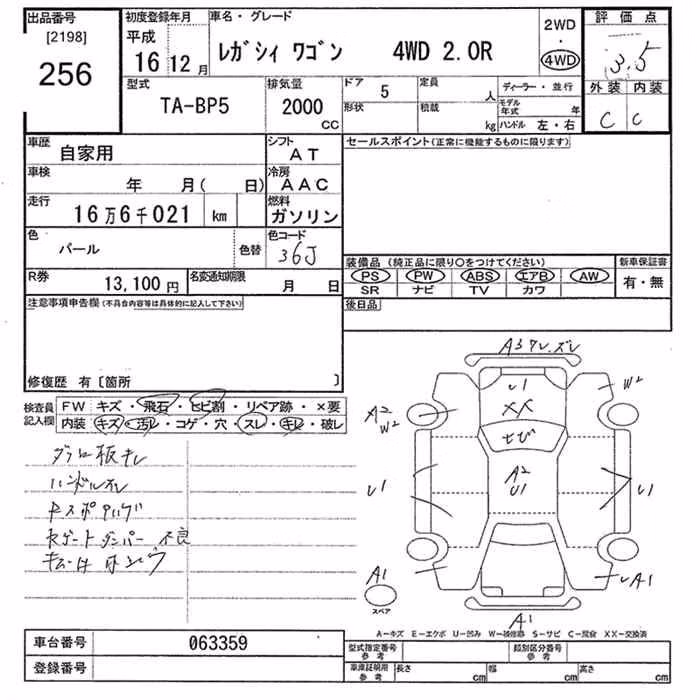 出品番号
[2198]
256
初度登録年月
平成
16 12 月
車名・グレード
レガシィ ワゴン 4WD 2.0R
2WD
・
4WD
評価点
3.5
外装 内装
C C
型式
TA-BP5
排気量
2000
CC
ドア
5
形状
定員
人
積載
kg
ディーラー・並行
モデル年式 年
ハンドル 左・右
車歴
自家用
シフト
AT
車検
年 月( 日)
冷房
AAC
走行
16万6千021 km
燃料
ガソリン
色
パール
色替
色コード
36J
R券
13,100 円
名変通知期限
月 日
セールスポイント(正常に機能するものに限ります)
装備品 (純正品に限り○をつけてください)
PS PW ABS エアB AW
SR ナビ TV カワ
新車保証書
有・無
後日品
注意事項申告欄(不具合内容等は具体的に記入して下さい)
修復歴 有〔箇所 〕
検査員記入欄
FW キズ・飛石・ヒビ割・リペア跡・×要
内装 キズ・汚レ・コゲ・穴・スレ・キレ・破レ
ハンドルスレ
ダンパー 不良
A3 ワレ.ズレ
U1
XX
ヒビ
A2
U1
A2
W2
W2
U1
U1
A1
スペア
A1
A1
A-キズ E-エクボ U-凹み W-補修跡 S-サビ C-腐食 XX-交換済
車台番号
063359
登録番号
型式指定番号
参考
類別区分番号
参考
車庫証明用
参考
長さ cm 幅 cm 高さ cm